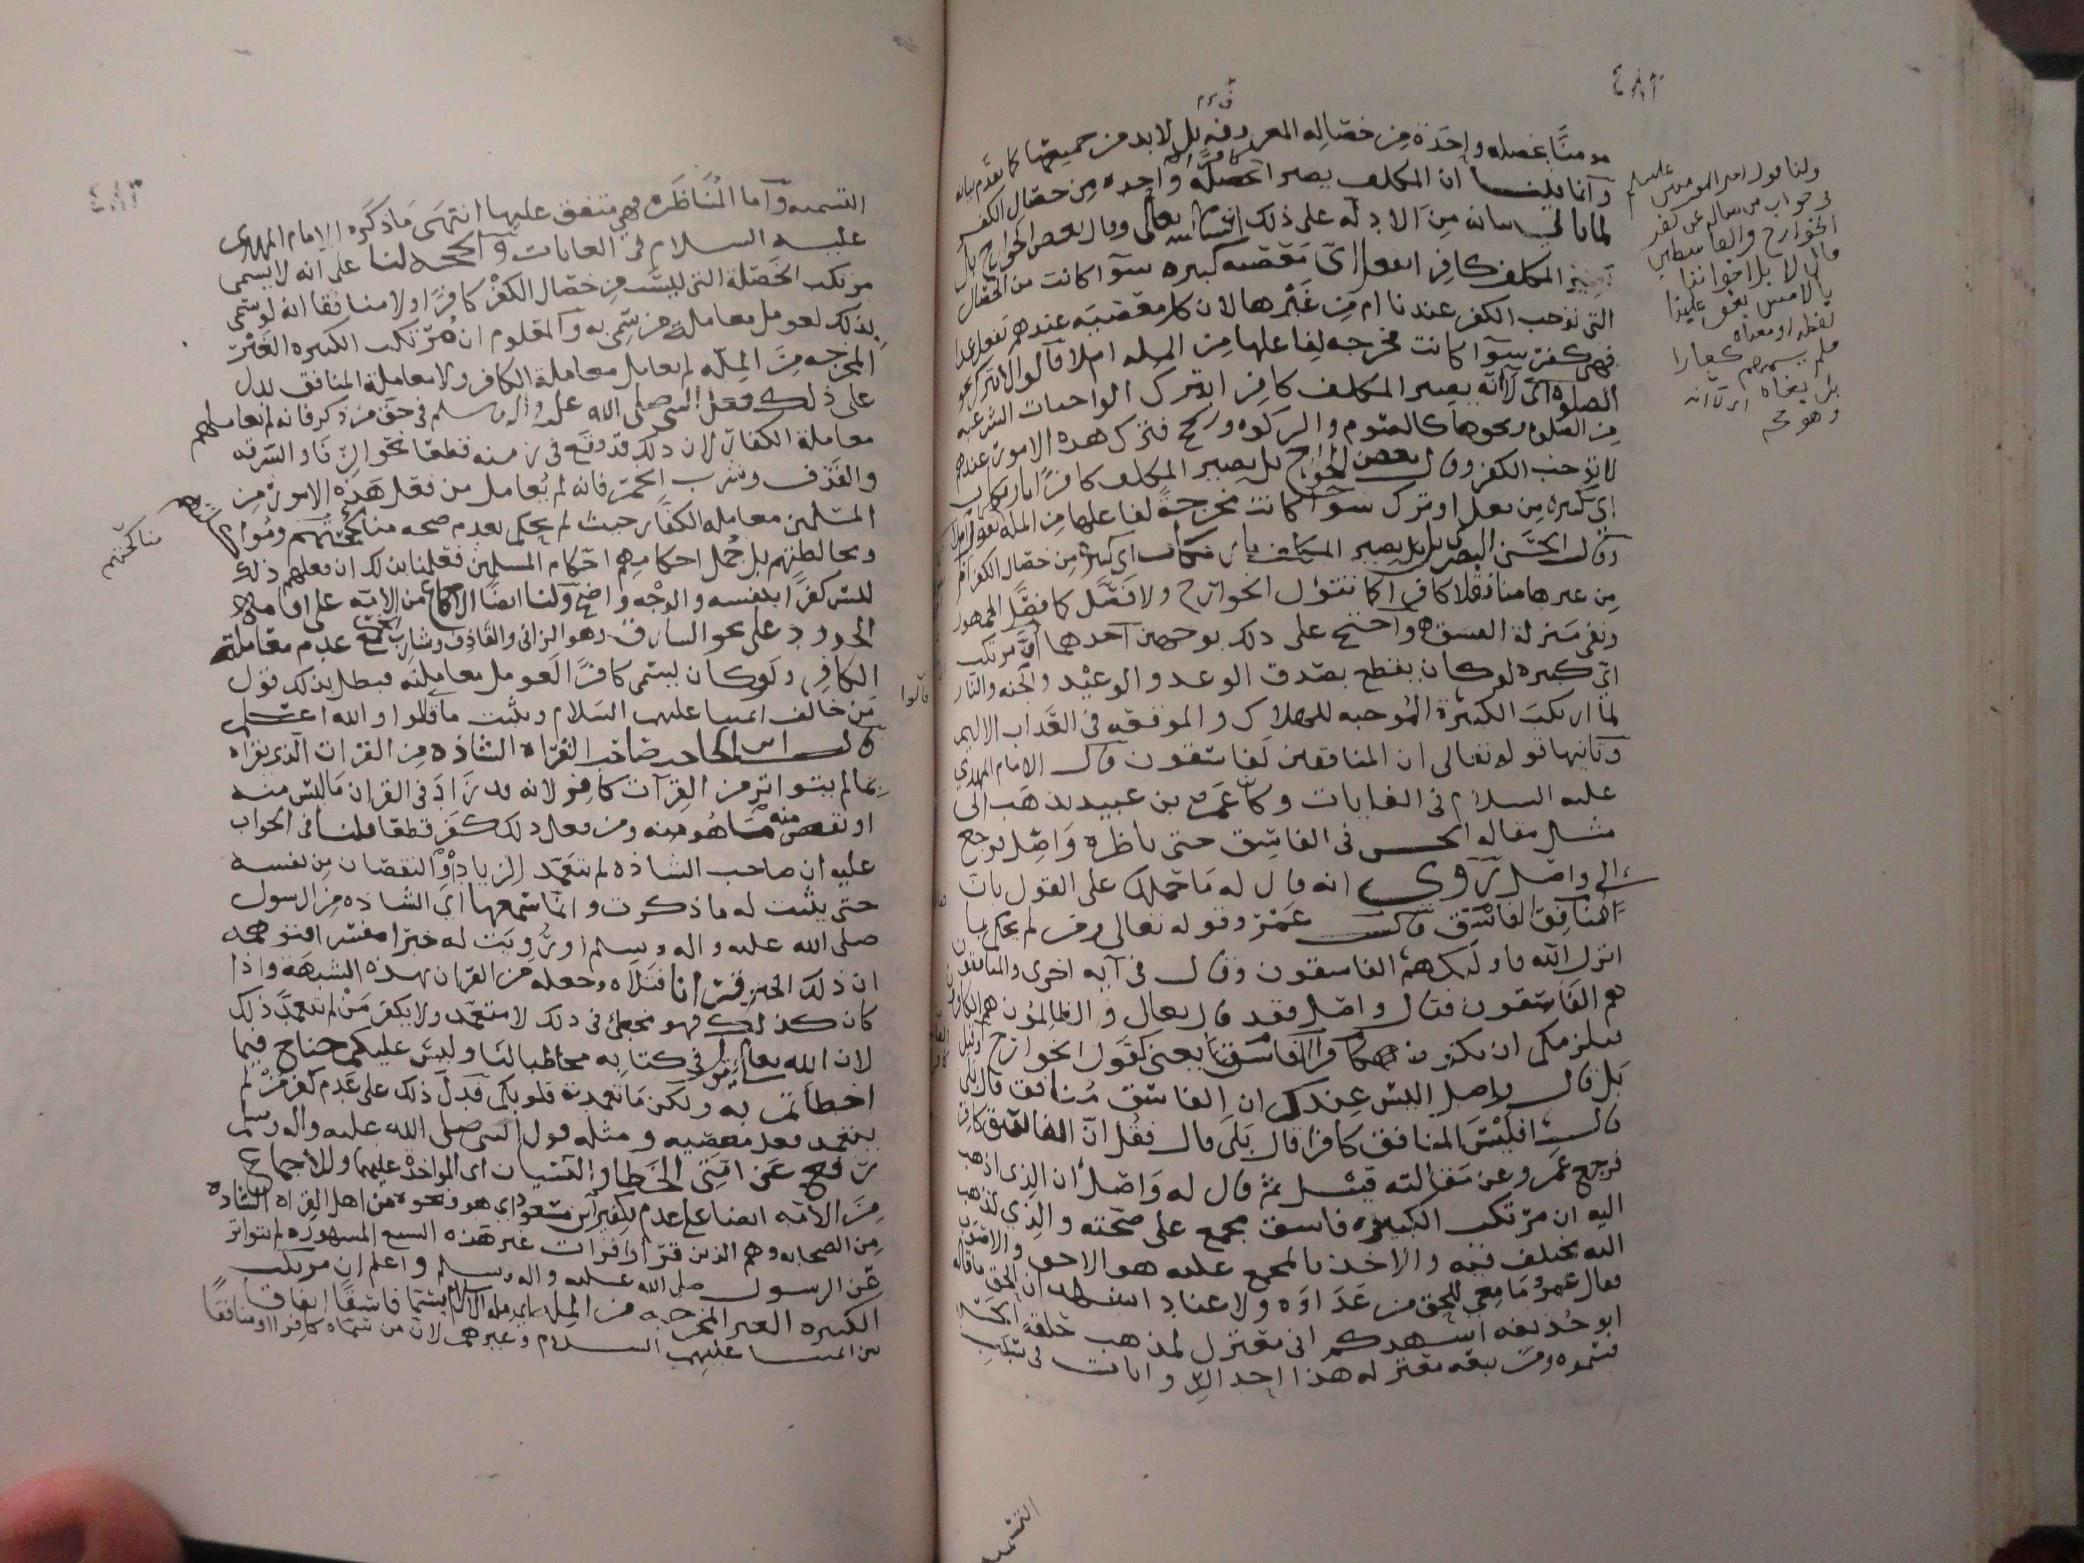 ٤٨٢
مومنا بخصله واحدة من خصاله المعروفه بل لابد من جميعها كما تقدم بيانه
وانا قلنا ان المكلف يصير كافرا بخصلة واحده من خصال الكفر
لما ياتي بيانه من الادله على ذلك انشا الله تعالى وقال بعض الخوارج بل
يصير المكلف كافرا بفعل اي معصيه كبيره سوآ كانت من الخصال
التي توجب الكفر عندنا ام من غيرها لان كل معصيه عندهم
فهي كفر سوآ كانت مخرجه لفاعلها من المله ام لا قالوا الا ترك نحو
الصلوه اي لانه يصير المكلف كافرا بترك الواجبات الشرعيه
من الصلوه ونحوها كالصوم والزكوه والحج فترك هذه الامور عندهم
لا يوجب الكفر وقال بعض الخوارج بل يصير المكلف كافرا بارتكاب
اي كبيره من فعل او ترك سوآ كانت مخرجة لفاعلها من المله نحو
وقال الحسن البصري بل يصير المكلف بارتكاب اي كبيرة من خصال الكفر ام
من غيرها منافقا لا كافرا كما تقول الخوارج ولا فصل كما فصل الجمهور
ونفى منزلة الفسق واحتج على ذلك بوجهين احدهما ان مرتكب
اي كبيره لو كان يقطع بصدق الوعد والوعيد والجنه والنار
لما ارتكب الكبيرة الموجبه للهلاك والموقعه في العذاب الاليم
وثانيها قوله تعالى ان المنافقين لفاسقون قال الامام المهدي
عليه السلام في الغايات وكان عمرو بن عبيد يذهب الى
مثل مقاله الحسن في الفاسق حتى ناظره واصل فرجع
الى واصل تروى انه قال له ما حملك على القول بان
المنافق الفاسق قال عمرو قوله تعالى ومن لم يحكم بما
انزل الله فاوليك هم الفاسقون وقال في آيه اخرى والمنافقون
هم الفاسقون فقال واصل فقد قال تعالى والظالمون هم الكافرون
فيلزمكم ان يكون كافرا الفاسق يعني كقول الخوارج
بل قال واصل اليس عندك ان الفاسق منافق قال بلى
قال افليس المنافق كافرا قال بلى قال فقل ان الفاسق كافر
فرجع عمرو عن مقالته قيل ثم قال له واصل ان الذي اذهب
اليه ان مرتكب الكبيره فاسق مجمع على صحته والذي تذهب
اليه مختلف فيه والاخذ بالمجمع عليه هو الاحق
فقال عمرو ما معي للحق من عداوه ولا عناد اشهد ان الحق ما قاله
ابو حذيفه اشهدكم اني معتزل لمذهب حلقة الحسن
فسموه ومن تبعه معتزله هذا احد الروايات في سبب
التسميه
ولنا قول امير المومنين عليلم
في جواب من ساله عن كفر
الخوارج والقاسطين
قال لا بل اخواننا
بالامس بغوا علينا
لفظه او معناه
فلم يسمهم كفارا
بل بغاه
٤٨٣
التسميه وآما المناظره فهي متفق عليها انتهى ما ذكره الامام المهدي
عليه السلام في الغايات والحجه لنا على انه لا يسمى
مرتكب الخصلة التي ليست من خصال الكفر كافرا ولا منافقا انه لو سمي
بذلك لعومل معاملة من سمي به والمعلوم ان مرتكب الكبيره الغير
المخرجه من المله لم يعامل معاملة الكافر ولا معاملة المنافق يدل
على ذلك فعل النبي صلى الله عليه واله وسلم في حق من ذكر فانه لم يعاملهم
معاملة الكفار لان ذلك قد وقع في زمنه قطعا نحو الزنا والسرقه
والقذف وشرب الخمر فانه لم يعامل من فعل هذه الامور من
المسلمين معامله الكفار حيث لم يحكم بعدم صحه مناكحتهم وموارثتهم
ومخالطتهم بل جعل احكامهم احكام المسلمين فعلمنا بذلك ان فعلهم ذلك
ليس كفرا بنفسه والوجه واضح ولنا ايضا الاجماع من الامه على اقامه
الحدود على نحو السارق وهو الزاني والقاذف وشارب الخمر مع عدم معاملة
الكافر ولو كان يسمى كافرا لعومل معاملته فبطل بذلك قول
من خالف ايمتنا عليهم السلام ويثبت ما قالوا والله اعلم
قال ابن الحاجب صاحب القراه الشاذه من القرات الذي يقراه
بما لم يتواتر من القرآت كافر لانه قد زاد في القران ما ليس منه
او نقص منه ما هو منه ومن فعل ذلك كفر قطعا قلنا في الجواب
عليه ان صاحب الشاذه لم يتعمد الزياده والنقصان من نفسه
حتى يثبت له ما ذكرت وانما سمعها اي الشاذه من الرسول
صلى الله عليه واله وسلم او رويت له خبرا مفسرا فتوهمه
ان ذلك الخبر قرانا فتلاه وجعله من القران بهذه الشبهة واذا
كان كذلك فهو مخطئ في ذلك لا متعمد ولا يكفر من لم يتعمد ذلك
لان الله تعالى يقول في كتابه مخاطبا لنا وليس عليكم جناح فيما
اخطأتم به ولكن ما تعمدت قلوبكم فدل ذلك على عدم كفر من لم
يتعمد فعل معصيه ومثله قول النبي صلى الله عليه واله وسلم
رفع عن امتي الخطا والنسيان اي المواخذه عليهما وللاجماع
من الامه ايضا على عدم تكفير ابن مسعود اي هو ونحوه من اهل القراه الشاذه
من الصحابه وهم الذين قروا قرات غير هذه السبع المشهوره لم تتواتر
عن الرسول صلى الله عليه واله وسلم واعلم ان مرتكب
الكبيره الغير المخرجه من المله اي مله الاسلام يسمى فاسقا اتفاقا
من ايمتنا عليهم السلام وغيرهم لان من سماه كافرا او منافقا
مناكحتهم
قالوا